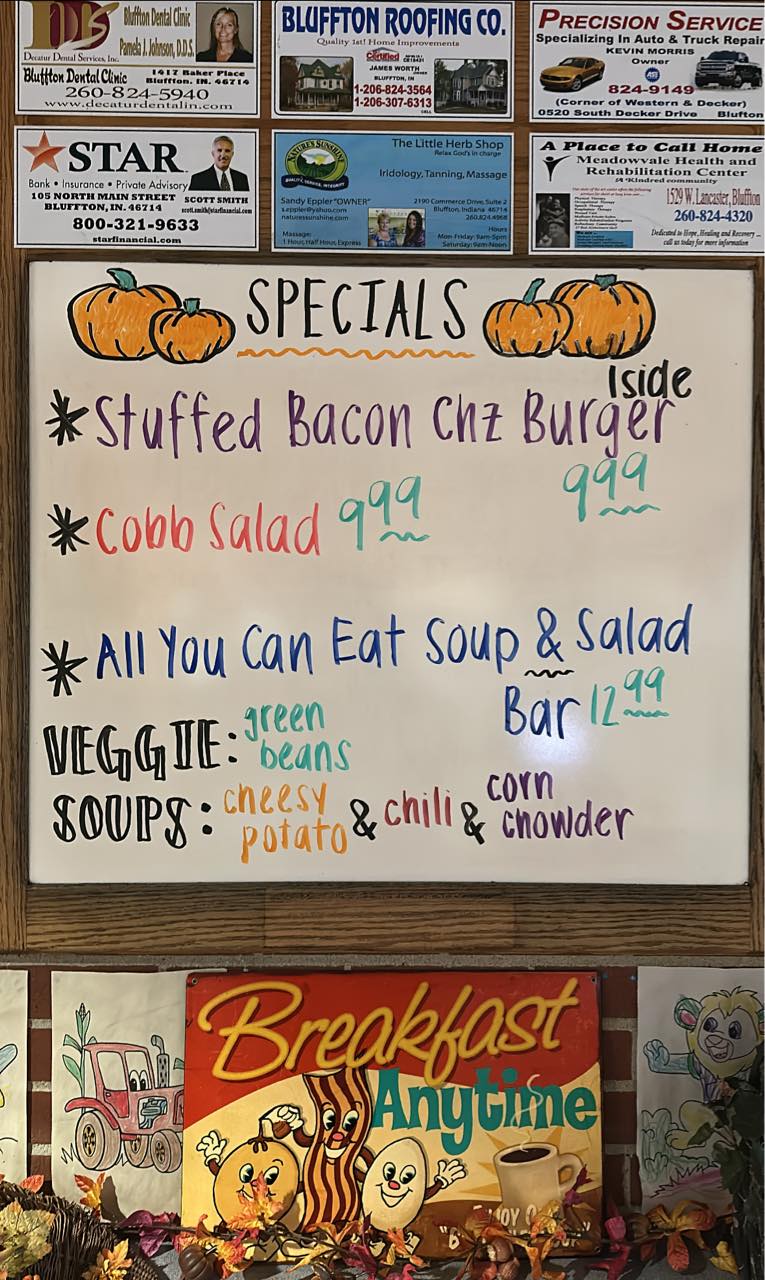 Bluffton Dental Clinic
Pamela J. Johnson, D.D.S.
Decatur Dental Services, Inc.
Bluffton Dental Clinic
1417 Baker Place
Bluffton, IN. 46714
260-824-5940
www.decaturdentalin.com
BLUFFTON ROOFING CO.
Quality 1st! Home Improvements
Certified
JAMES WORTH
OWNER
BLUFFTON, IN
1-206-824-3564
1-206-307-6313
CELL
PRECISION SERVICE
Specializing In Auto & Truck Repair
KEVIN MORRIS
Owner
824-9149
(Corner of Western & Decker)
0520 South Decker Drive Bluffton
STAR
Bank • Insurance • Private Advisory
105 NORTH MAIN STREET
BLUFFTON, IN. 46714
SCOTT SMITH
scott.smith@starfinancial.com
800-321-9633
starfinancial.com
NATURE'S SUNSHINE
QUALITY, SERVICE, INTEGRITY
The Little Herb Shop
Relax God's in charge
Iridology, Tanning, Massage
Sandy Eppler "OWNER"
s.eppler@yahoo.com
naturessunshine.com
2190 Commerce Drive, Suite 2
Bluffton, Indiana 46714
260.824.4968
Massage:
1 Hour, Half Hour, Express
Hours
Mon-Friday: 9am-5pm
Saturday: 9am-Noon
A Place to Call Home
Meadowvale Health and
Rehabilitation Center
A Kindred community
1529 W. Lancaster, Bluffton
260-824-4320
Dedicated to Hope, Healing and Recovery ...
call us today for more information
SPECIALS
1side
* Stuffed Bacon Chz Burger
9 99
* Cobb Salad 9 99
* All You Can Eat Soup & Salad
Bar 12 99
VEGGIE: green
beans
SOUPS: cheesy
potato & chili & corn
chowder
Breakfast
Anytime